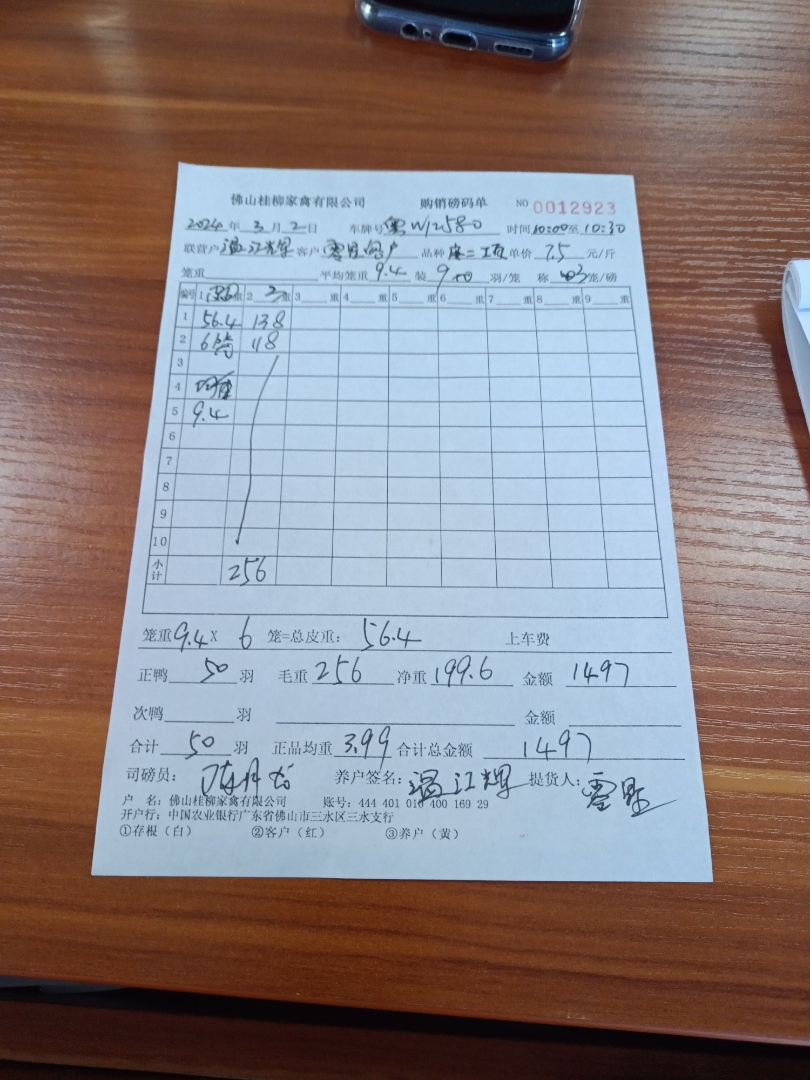 佛山桂柳家禽有限公司 购销磅码单 NO 0012923
2024年3月2日 车牌号粤W12580 时间10:00至10:30
联营户温江辉 客户零星客户 品种 单价7.5元/斤
笼重 平均笼重9.4 装9 羽/笼 称 笼/磅
编号 1 重 2 重 3 重 4 重 5 重 6 重 7 重 8 重 9 重
1 56.4 138
2 6 118
3
4
5 9.4
6
7
8
9
10
小计 256
笼重9.4X 6 笼=总皮重: 56.4 上车费
正鸭 50 羽 毛重 256 净重 199.6 金额 1497
次鸭 羽 金额
合计 50 羽 正品均重 3.99 合计总金额 1497
司磅员: 养户签名: 温江辉 提货人: 零星
户 名: 佛山桂柳家禽有限公司 账号: 444 401 010 400 169 29
开户行: 中国农业银行广东省佛山市三水区三水支行
①存根(白) ②客户(红) ③养户(黄)